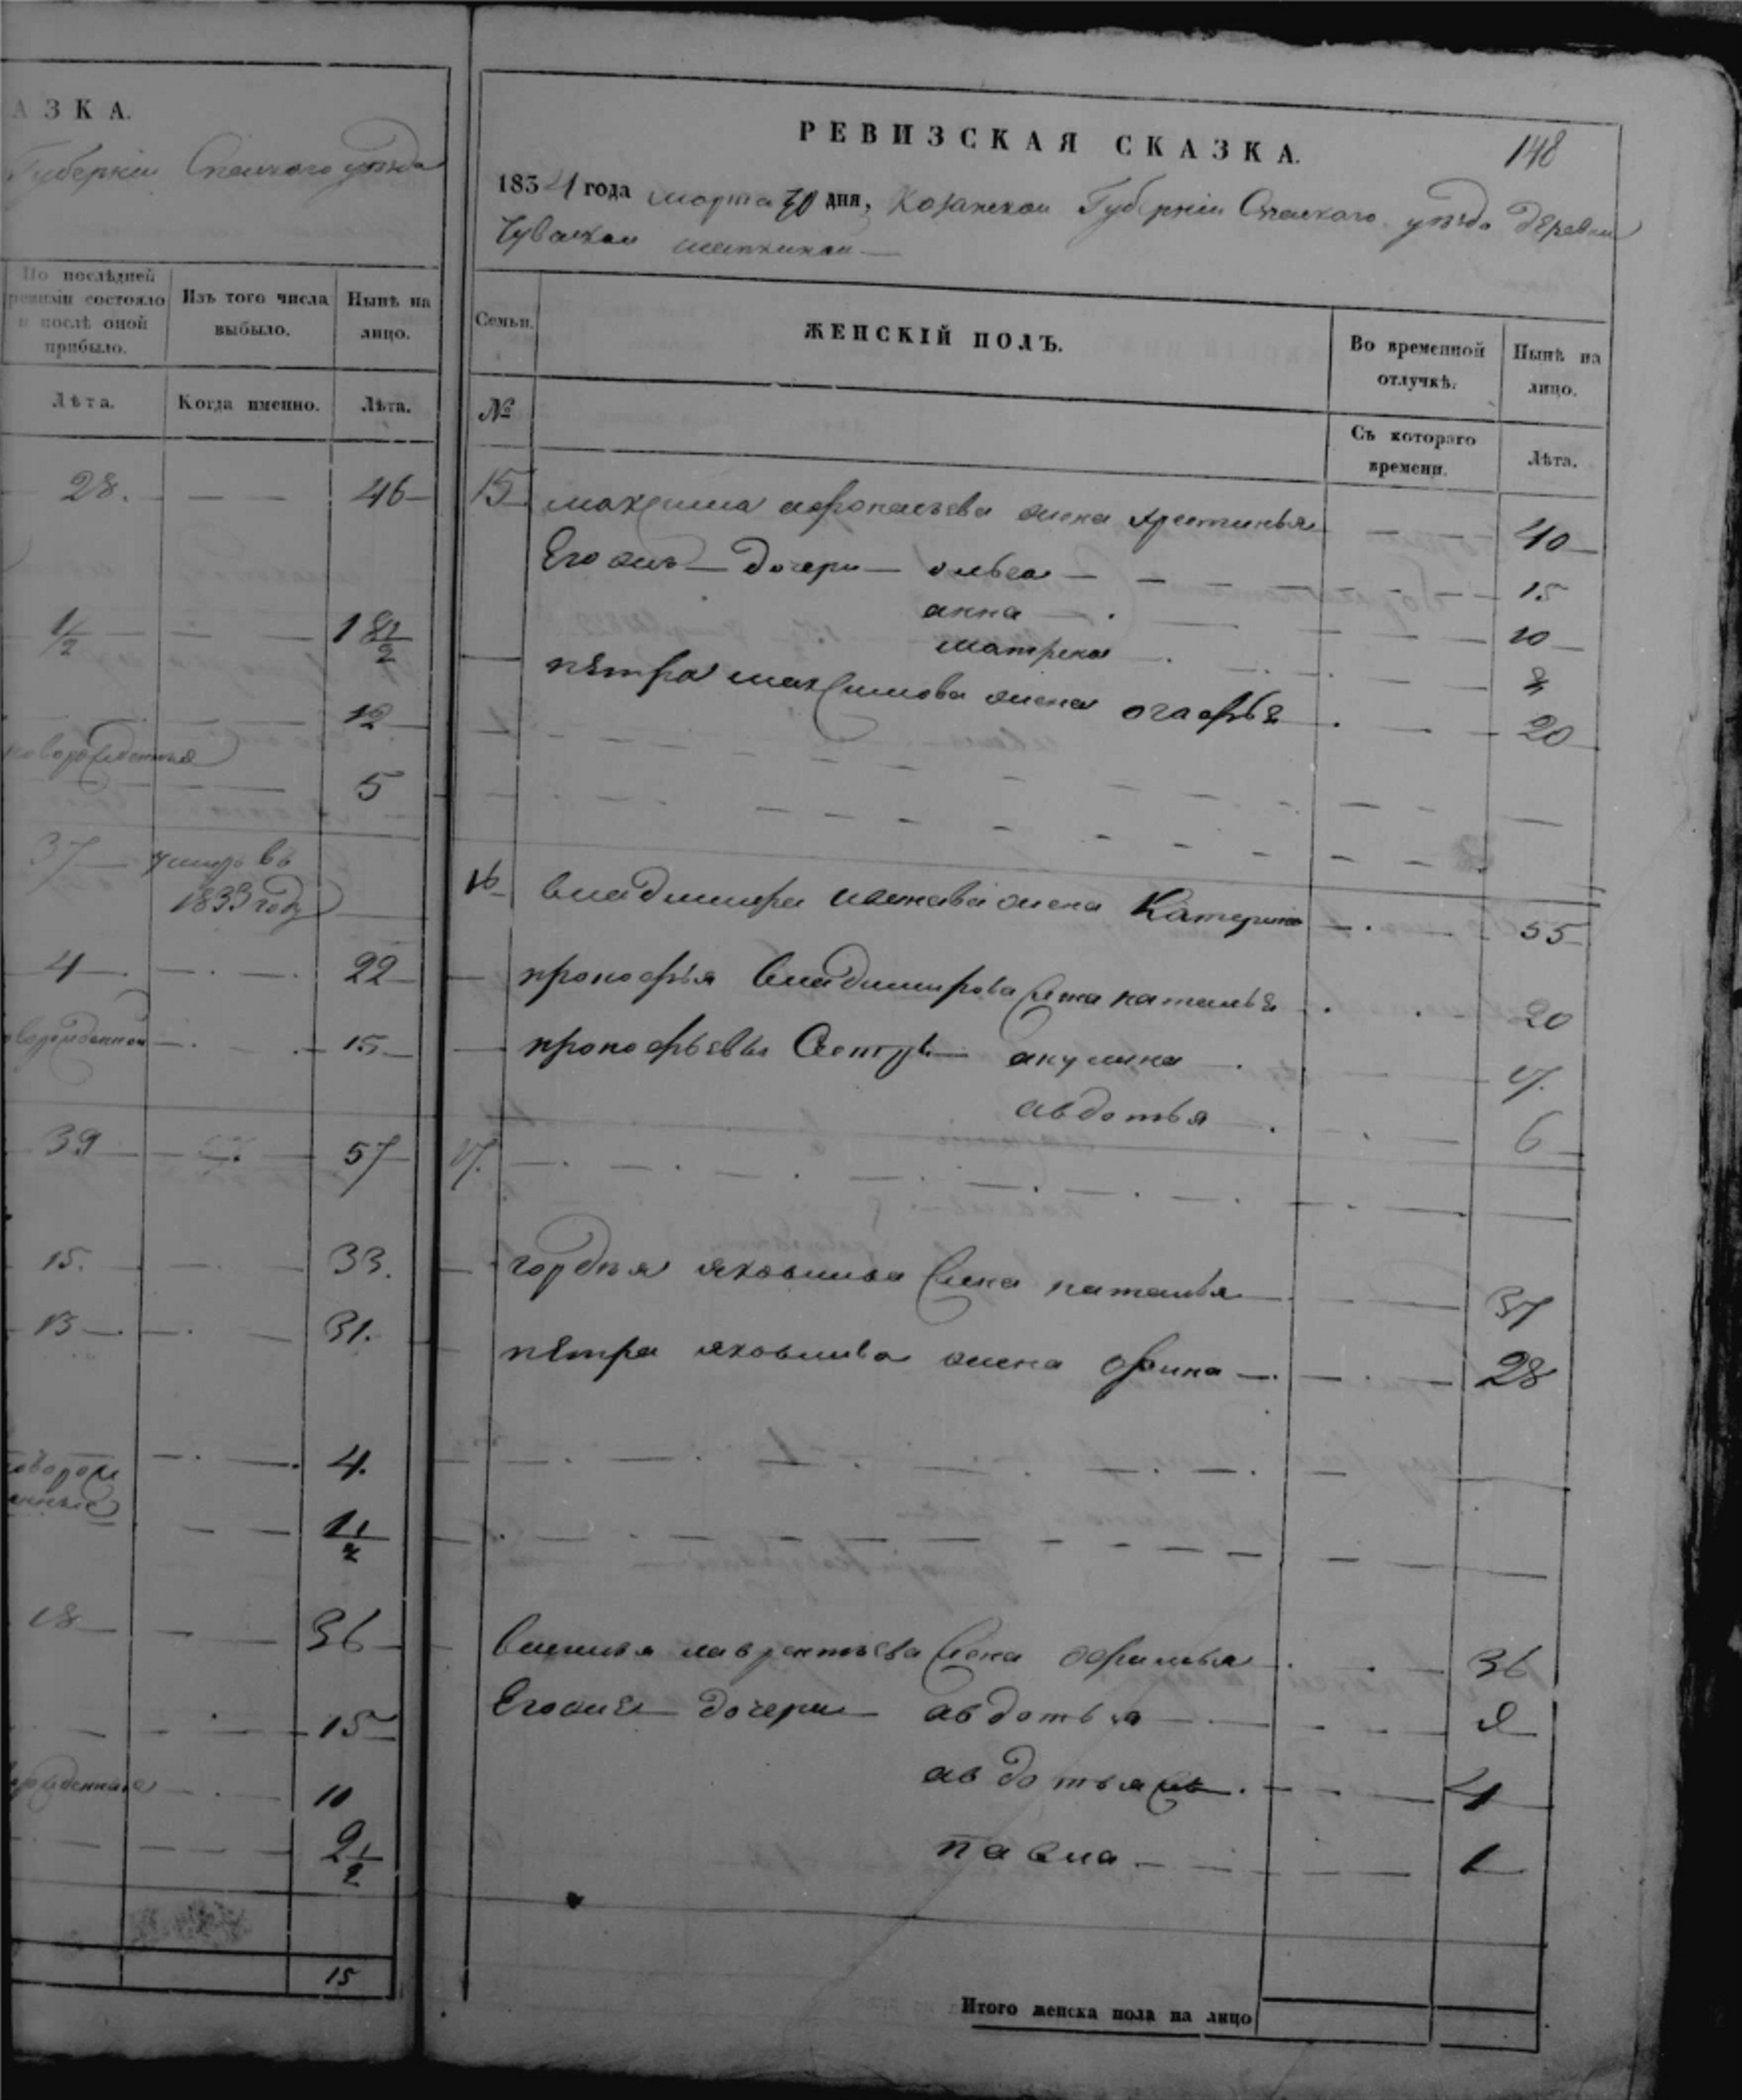 АЗКА.
Губерніи Спаского уѣзда
По послѣдней
ревизіи состояло
и послѣ оной
прибыло.
Изъ того числа
выбыло.
Нынѣ на
лицо.
Лѣта.
Когда именно.
Лѣта.
28. — — 46
1/2 — — 18 1/2
12
новорожденныя
5
37 умеръ въ
1833 году
4 — 22
ворожденной — 15
39 — 57
15. — 33.
13 — 31.
оворож
енные
4.
1 1/2
18 — 36
15
орожденные 10
2 1/2
15
148
РЕВИЗСКАЯ СКАЗКА.
1834 года марта 30 дня, Казанской Губерніи Спаского уѣзда деревни
Чуваской
Семьи.
ЖЕНСКІЙ ПОЛЪ.
Во временной
отлучкѣ.
Нынѣ на
лицо.
№
Съ котораго
времени.
Лѣта.
15 максима афонасьева жена крестинья 40
Его жъ дочери ольга 15
анна 10
матрена
петра максимова жена огафья 20
16 владимира жена Катерина 55
прокофья владимирова жена наталья 20
прокофьевы акулина 7.
авдотья 6
17.
гордея яковлева жена наталья 37
петра яковлева жена орина 28
василья лаврентьева жена 36
Его же дочери авдотья
авдотья 4
павла 1
Итого женска пола на лицо